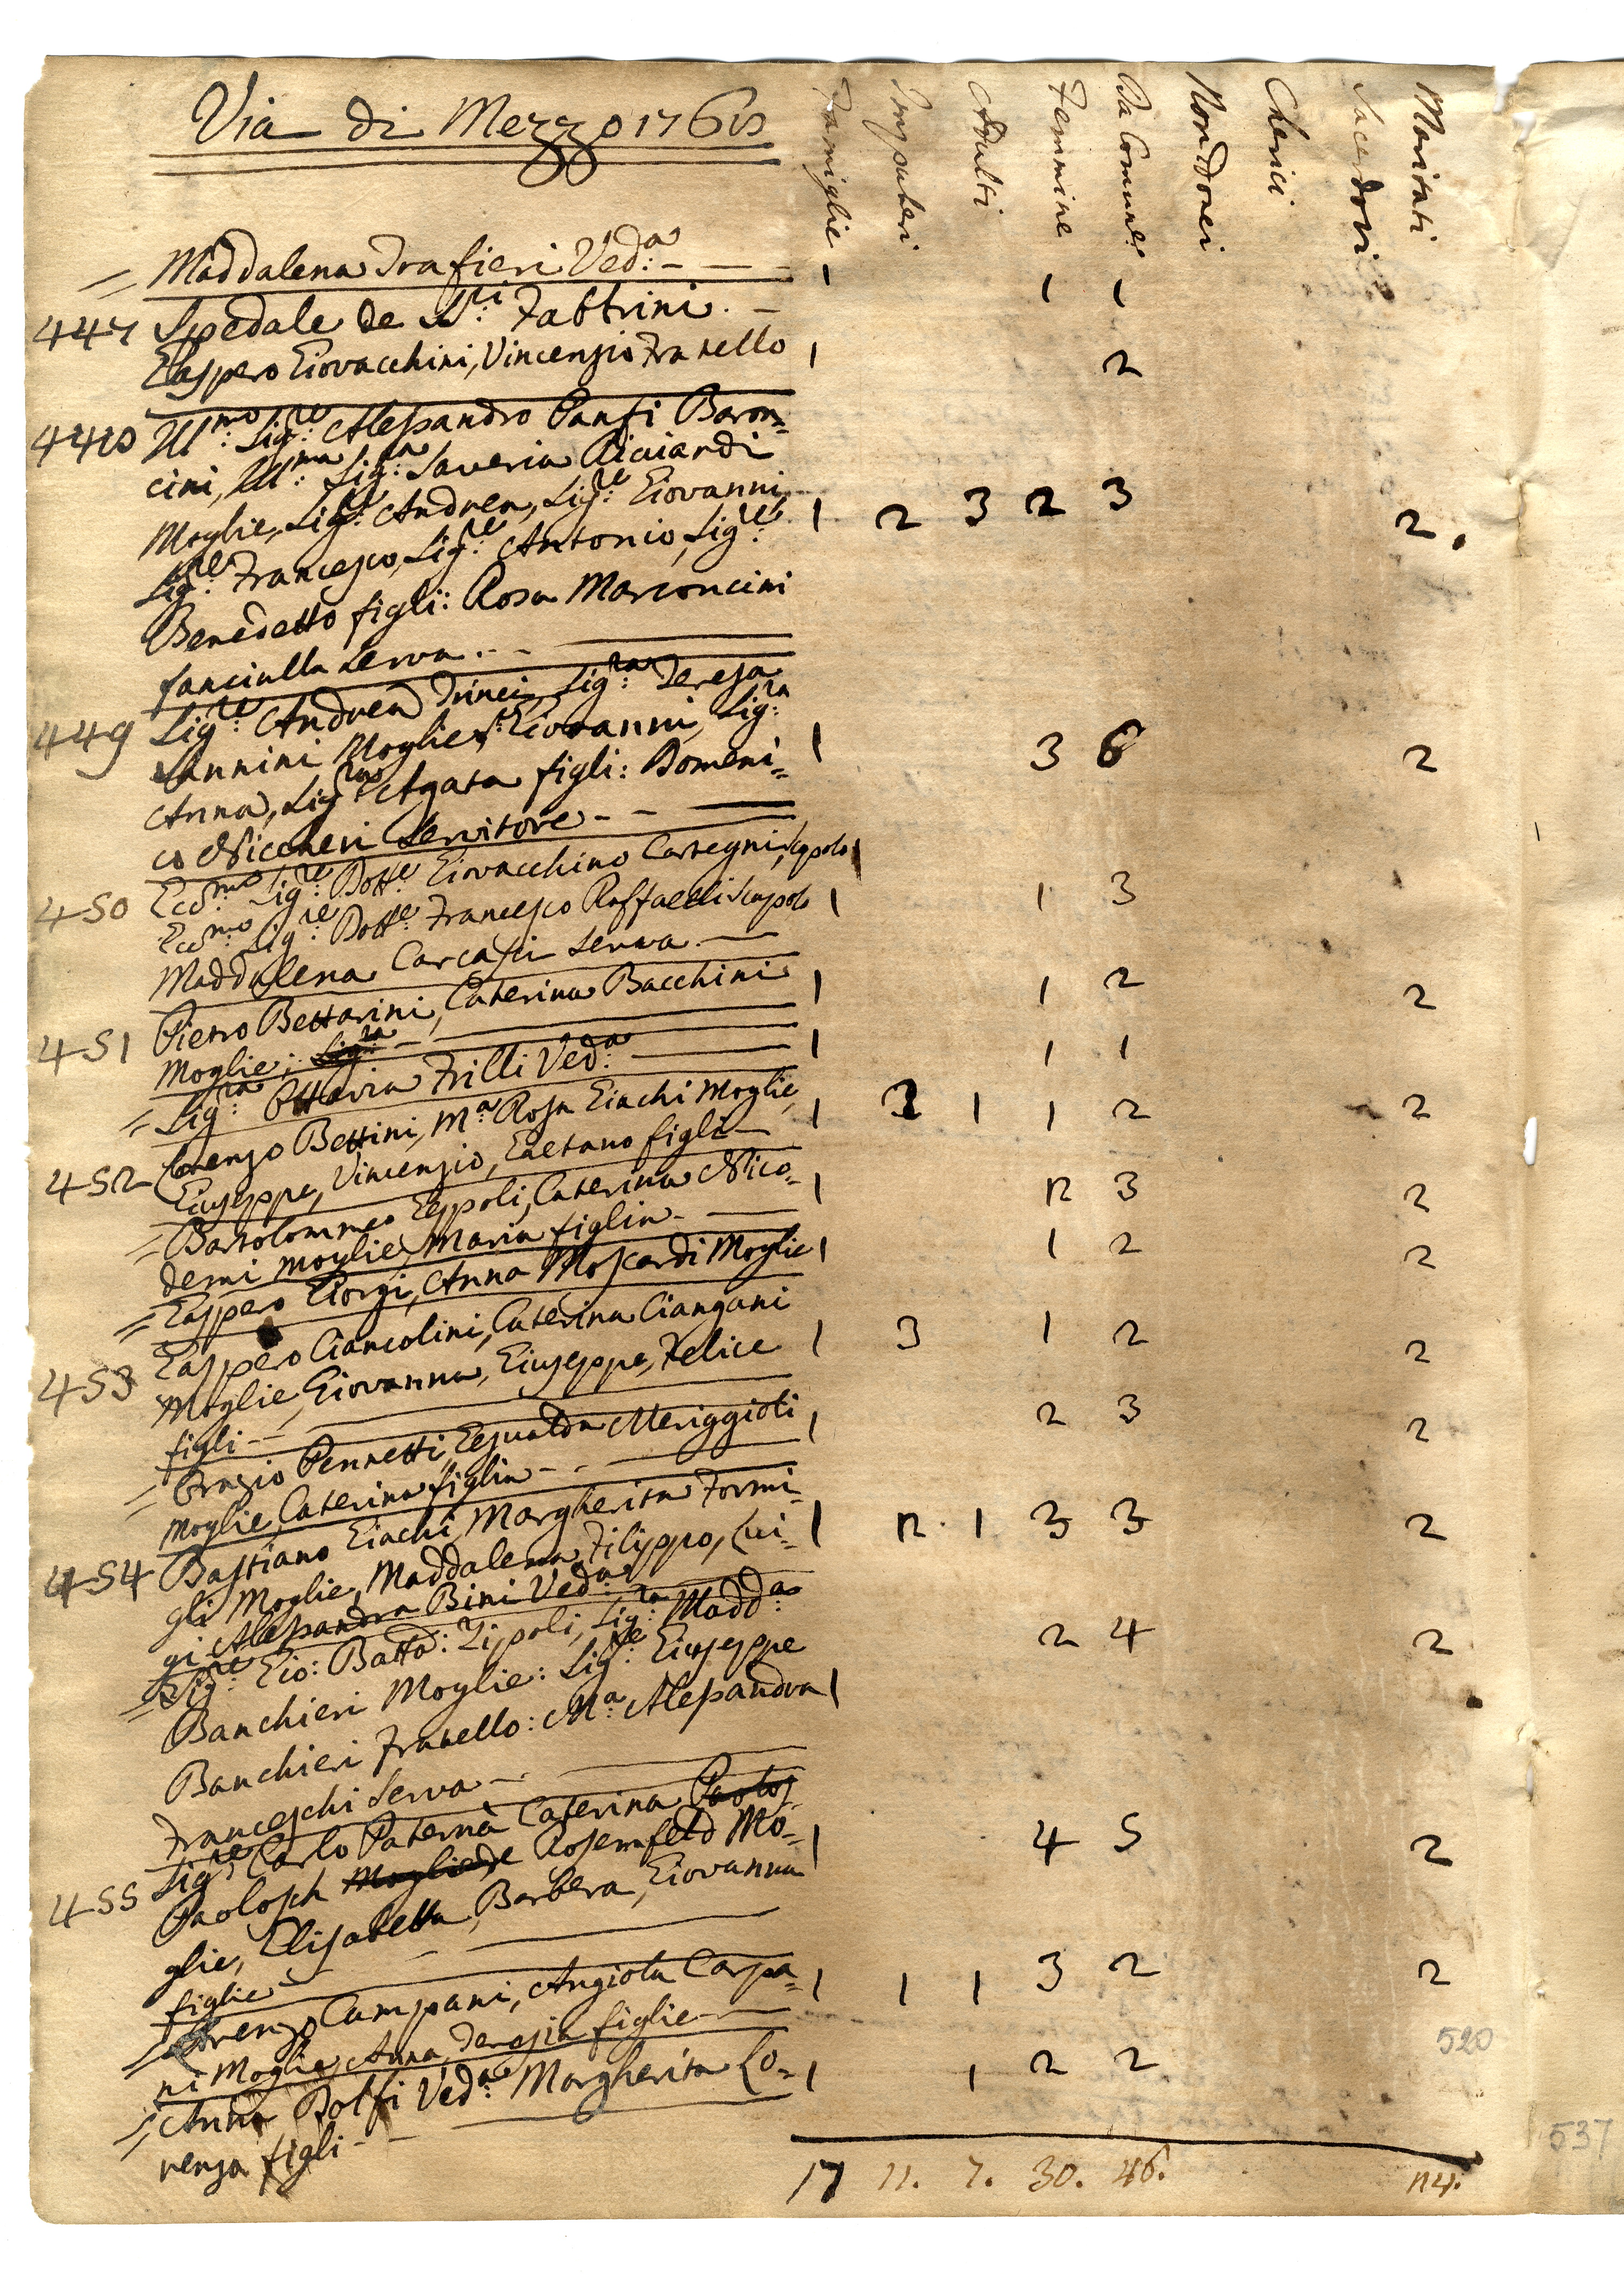 Via di Mezzo 1768
Famiglie Impuberi Adulti Femmine Da Comunne Non Idonei Cherici Sacerdoti Maritati
= Maddalena Trafieri Ved:a - - - 1 1 1
447 Spedale de SS:ri Fabbrini. -
Gaspero Giovacchini, Vincenzio Fratello 1 2
448 Ill:mo Sig:re Alessandro Panfi Baron=
cini, Ill:ma Sig:ra Saveria Ricciardi
Moglie, Sig:re Andrea, Sig:re Giovanni 1 2 3 2 3 2.
Sig:re Francesco, Sig:re Antonio, Sig:re
Benedetto figli: Rosa Marconcini
fanciulla Serva. - -
449 Sig:re Andrea Trinci, Sig:ra Teresa
Sannini Moglie, S: Giovanni, Sig:ra 1 3 6 2
Anna, Sig:ra Agata figli: Domeni=
co Niccheri Servitore - -
450 Ecc:mo Sig:re Dott:e Giovacchino Cartegni, Scapolo 1
Ecc:mo Sig:re Dott:e Francesco Raffaelli Scapolo 1 1 3
Maddalena Carcasi Serva. -
451 Pietro Bettarini, Caterina Bacchini 1 1 2 2
Moglie: Sig:ra -
= Sig:ra Ottavia Frilli Ved:a 1 1 1
452 Lorenzo Bettini, M:a Rosa Giachi Moglie, 1 2 1 1 2 2
Giuseppe, Vincenzio, Gaetano figli -
= Bartolommeo Zeppoli, Caterina Nico= 1 2 3 2
demi moglie, Maria figlia. -
= Gaspero Giorgi, Anna Moscardi Moglie 1 1 2 2
453 Gaspero Ciancolini, Caterina Ciangani
Moglie, Giovanna, Giuseppe, Felice 1 3 1 2 2
figli - -
= Orazio Pennetti Gesualda Meriggioli 1 2 3 2
Moglie, Caterina figlia - -
454 Bastiano Giachi, Margherita Formi=
gli Moglie, Maddalena, Filippo, Lui= 1 2. 1 3 3 2
gi Alessandra Bini Ved:a
= Sig:re Gio: Batta: Zipoli, Sig:ra Madd:a 2 4 2
Banchieri Moglie: Sig:re Giuseppe
Banchieri Fratello: M:a Alessandra 1
Franceschi Serva -.
455 Sig:re Carlo Paternà Caterina Paolos
Paolosch Moglie de Rosemfeld Mo= 1 4 5 2
glie, Elisabetta, Barbera, Giovanna
figlie -
= Lorenzo Campani, Angiola Carpa= 1 1 1 3 2 2
ni Moglie, Anna, Teresia figlie -
= Anna Dolfi Ved:a Margherita Lo= 1 1 2 2
renza figli - -
17 11. 7. 30. 46. 24.
520
537